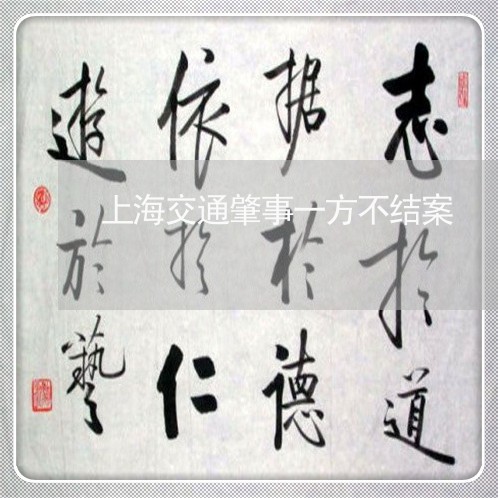 志於道
据於德
依於仁
遊於藝
上海交通肇事一方不结案